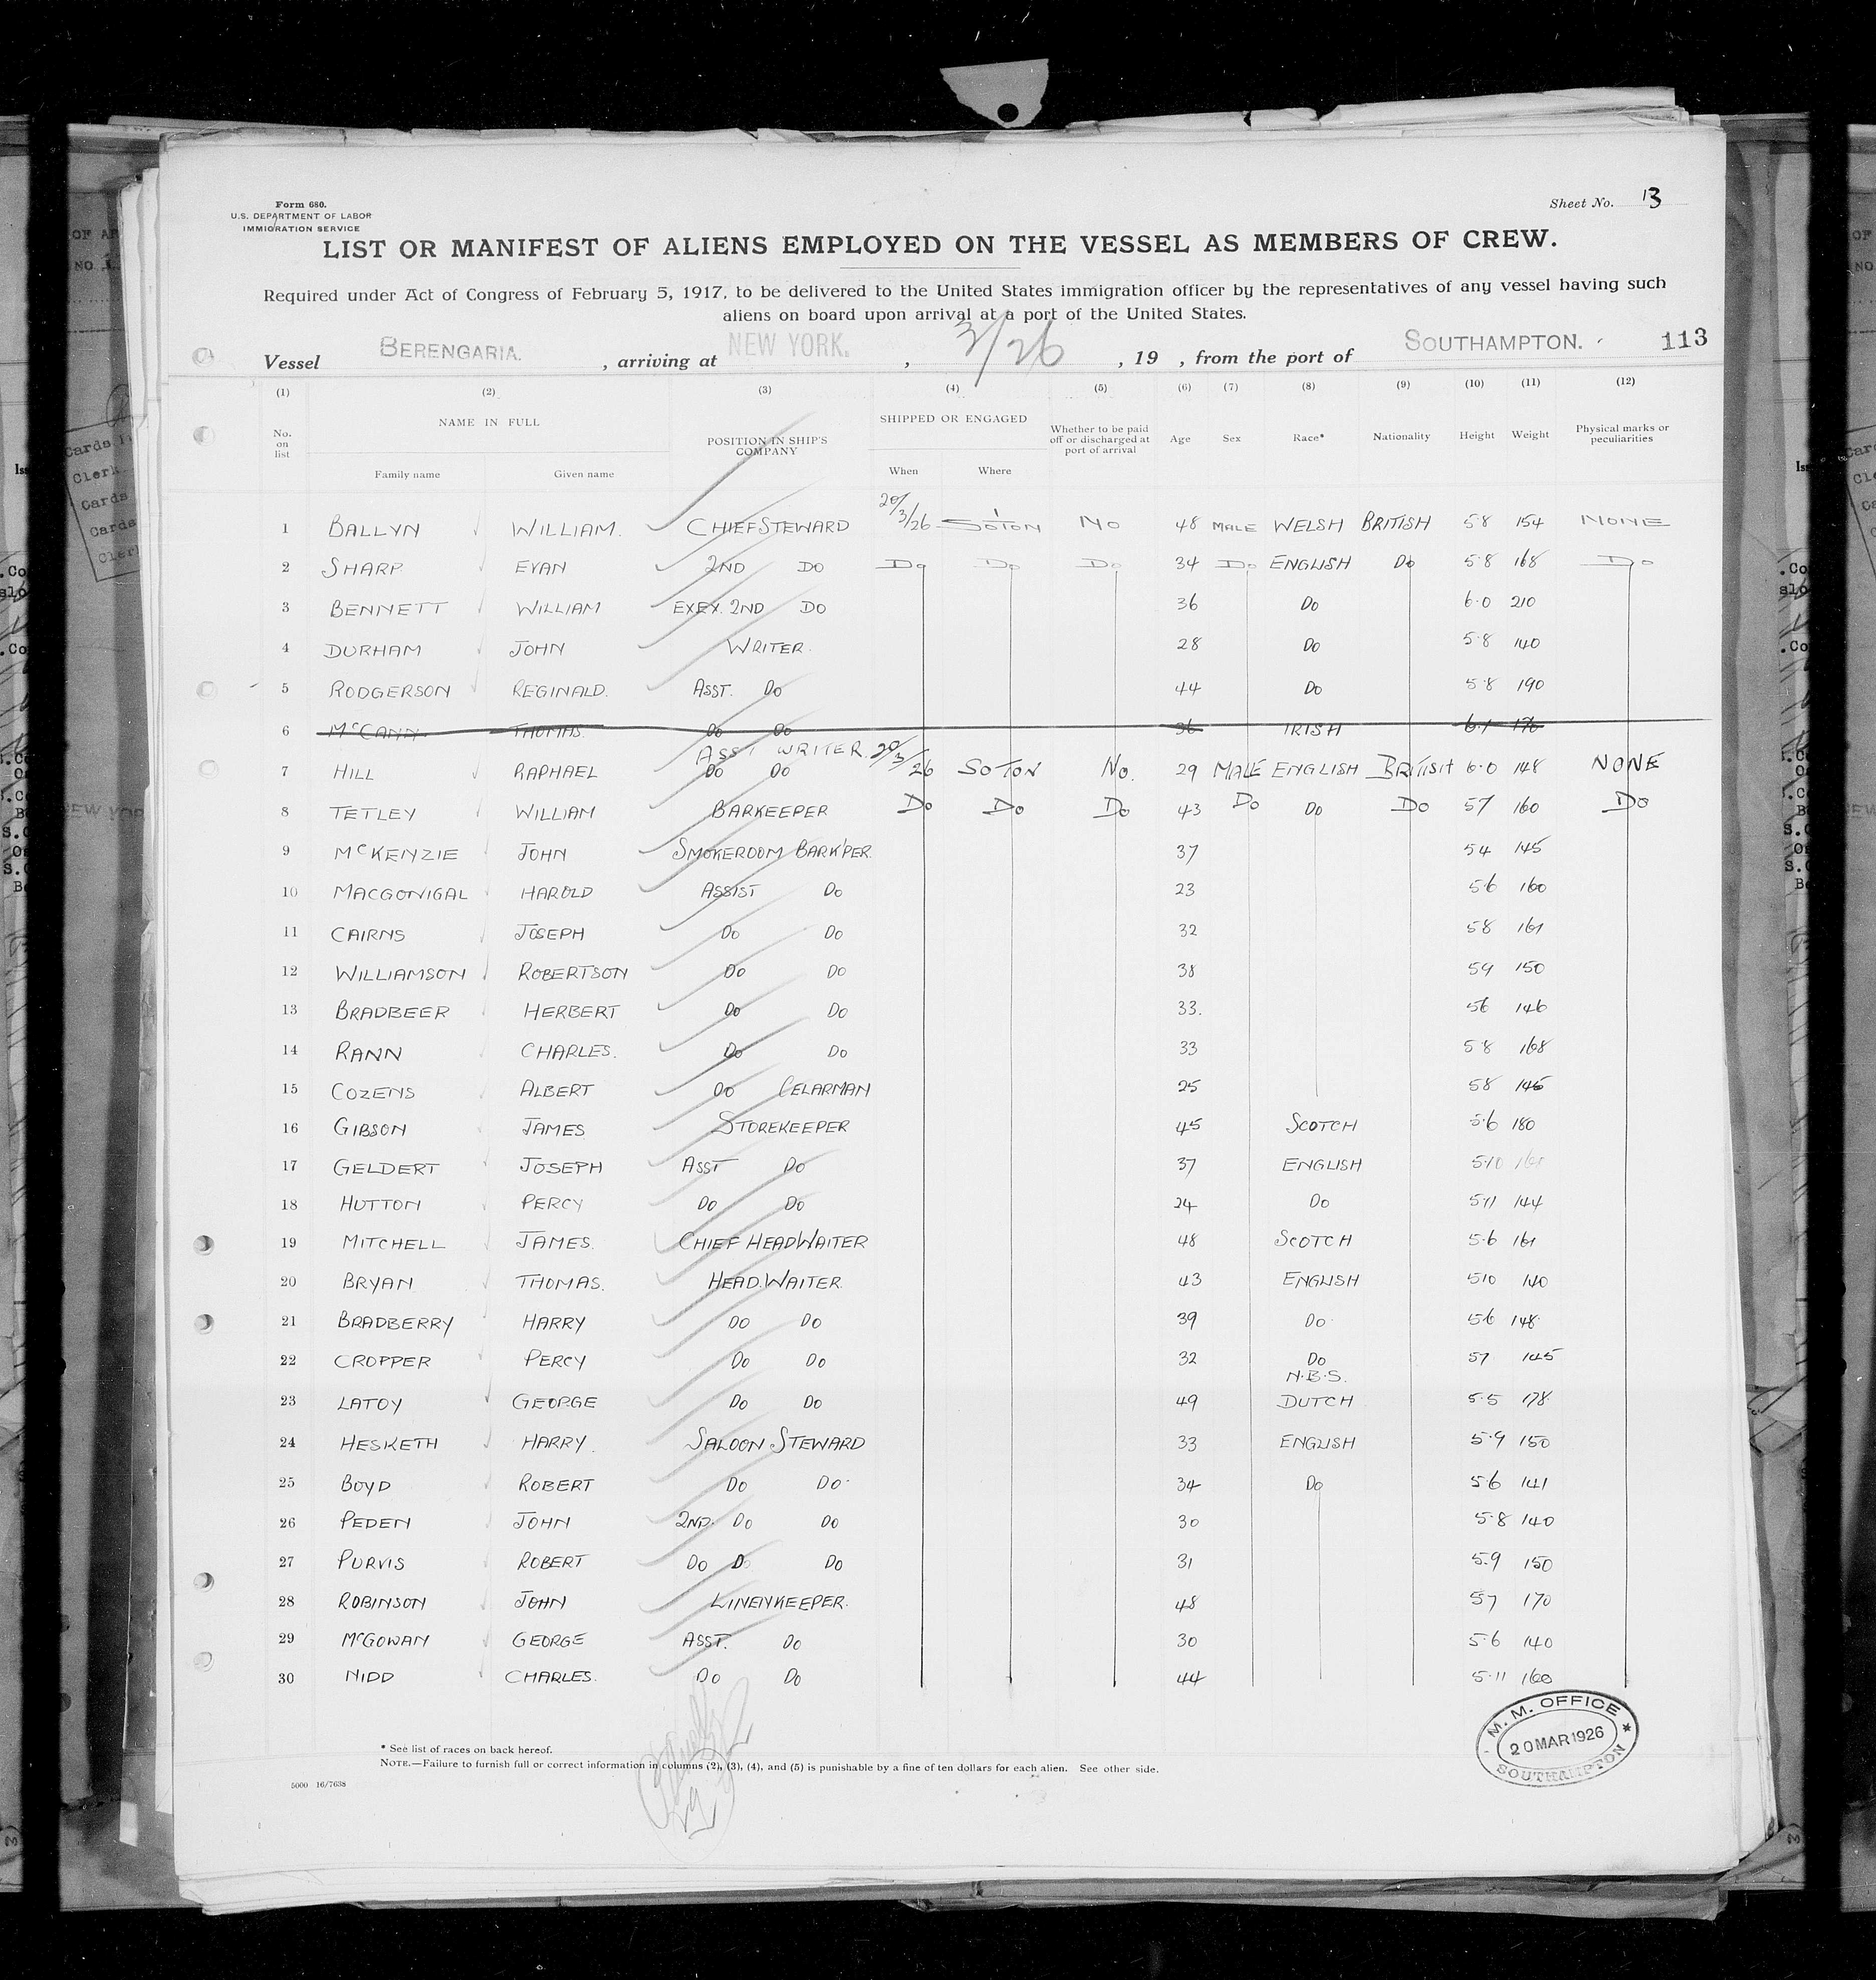 Form 680.
U.S. DEPARTMENT OF LABOR
IMMIGRATION SERVICE
Sheet No. 13
LIST OR MANIFEST OF ALIENS EMPLOYED ON THE VESSEL AS MEMBERS OF CREW.
Required under Act of Congress of February 5, 1917, to be delivered to the United States immigration officer by the representatives of any vessel having such
aliens on board upon arrival at a port of the United States.
Vessel BERENGARIA. , arriving at NEW YORK. , 3/26 , 19 , from the port of SOUTHAMPTON. 113
(1) (2) (3) (4) (5) (6) (7) (8) (9) (10) (11) (12)
No. on list NAME IN FULL Family name Given name POSITION IN SHIP'S COMPANY SHIPPED OR ENGAGED When Where Whether to be paid off or discharged at port of arrival Age Sex Race* Nationality Height Weight Physical marks or peculiarities
1 BALLYN WILLIAM. CHIEF STEWARD 20/3/26 S'OTON NO 48 MALE WELSH BRITISH 5 8 154 NONE
2 SHARP EVAN 2ND DO DO DO DO 34 DO ENGLISH DO 5 8 168 DO
3 BENNETT WILLIAM EXEX. 2ND DO 36 DO 6.0 210
4 DURHAM JOHN WRITER. 28 DO 5.8 140
5 RODGERSON REGINALD. ASST. DO 44 DO 5.8 190
6 McCANN THOMAS. DO DO 36 IRISH 6.1 170
ASST WRITER
7 HILL RAPHAEL DO DO 20/3/26 SOTON NO. 29 MALE ENGLISH BRITISH 6.0 148 NONE
8 TETLEY WILLIAM BARKEEPER DO DO DO 43 DO DO DO 57 160 DO
9 McKENZIE JOHN SMOKEROOM BARK'PER. 37 54 145
10 MACGONIGAL HAROLD ASSIST DO 23 5.6 160
11 CAIRNS JOSEPH DO DO 32 58 161
12 WILLIAMSON ROBERTSON DO DO 38 59 150
13 BRADBEER HERBERT DO DO 33. 56 146
14 RANN CHARLES. DO DO 33 5 8 168
15 COZENS ALBERT DO CELARMAN 25 58 146
16 GIBSON JAMES STOREKEEPER 45 SCOTCH 5.6 180
17 GELDERT JOSEPH ASST DO 37 ENGLISH 5.10
18 HUTTON PERCY DO DO 24 DO 5.11 144
19 MITCHELL JAMES. CHIEF HEADWAITER 48 SCOTCH 5.6 161
20 BRYAN THOMAS. HEAD.WAITER. 43 ENGLISH 510 140
21 BRADBERRY HARRY DO DO 39 DO 5.6 148
22 CROPPER PERCY DO DO 32 DO 57 145
N.B.S.
23 LATOY GEORGE DO DO 49 DUTCH 5.5 178
24 HESKETH HARRY. SALOON STEWARD 33 ENGLISH 5.9 150
25 BOYD ROBERT DO DO 34 DO 5.6 141
26 PEDEN JOHN 2ND. DO DO 30 5.8 140
27 PURVIS ROBERT DO DO DO 31 5.9 150
28 ROBINSON JOHN LINENKEEPER. 48 57 170
29 McGOWAN GEORGE ASST. DO 30 5.6 140
30 NIDD CHARLES. DO DO 44 5.11 160
M. M. OFFICE
20 MAR 1926
SOUTHAMPTON
* See list of races on back hereof.
NOTE.—Failure to furnish full or correct information in columns (2), (3), (4), and (5) is punishable by a fine of ten dollars for each alien. See other side.
5000 16/7638